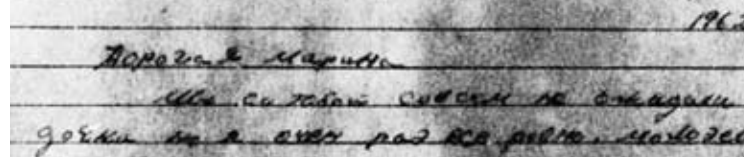 1962
Дорогая Марина
Мы с тобой совсем не ожидали
дочки но я очен рад все равно. молодец